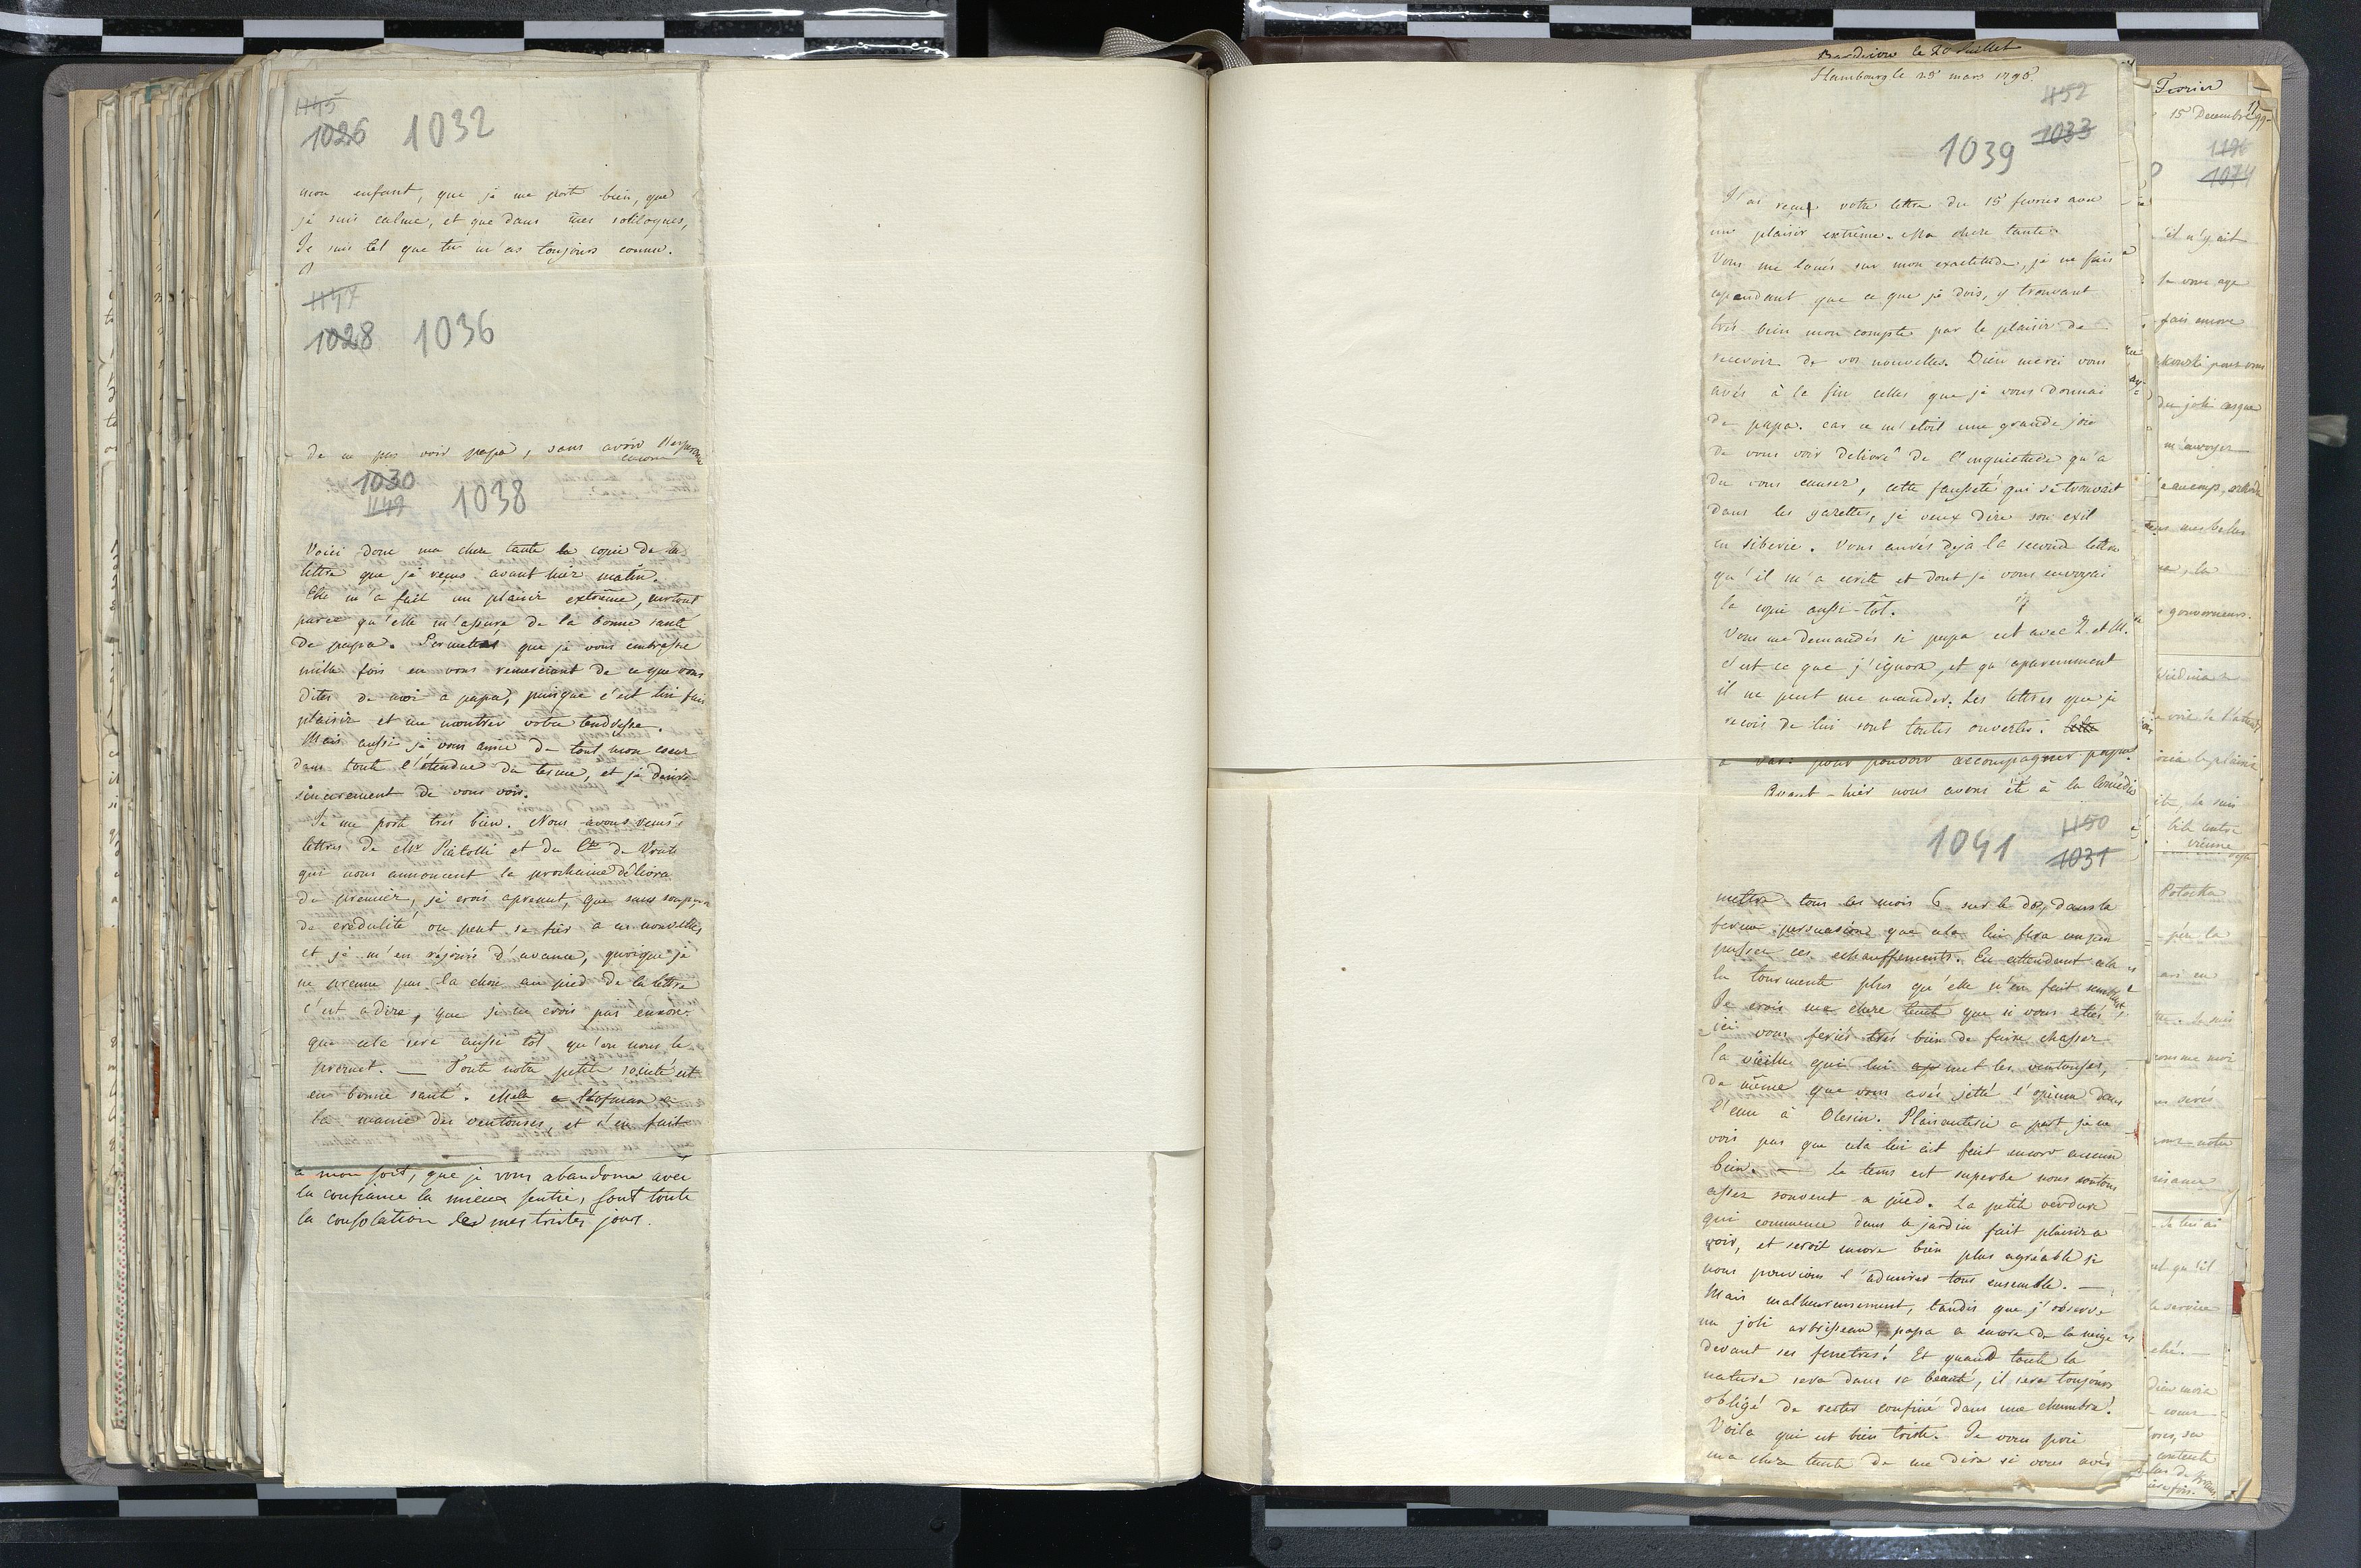 1145
1026 1032
mon enfant, que je me porte bien, que
je suis calme, et que dans mes soliloques,
Je suis tel que tu m'as toujours connu.
1147
1028 1036
de ne pas voir papa, sans avoir
encore
1030
1149 1038
Voici donc ma chere tante la copie de la
lettre que je reçus avant hier matin.
Elle m'a fait un plaisir extrême, surtout
parce qu'elle m'assura de la bonne santé
de papa. Permettés que je vous embrasse
mille fois en vous remerciant de ce que vous
dites de moi a papa, puisque c'est lui faire
plaisir et me montrer votre tendresse.
Mais aussi je vous aime de tout mon coeur
dans toute l'étendue du terme, et je desire
sincerement de vous voir.
Je me porte tres bien. Nous avons reçus
lettres de Mr Piatolli et du Cte de
qui nous annoncent la prochaine délivra
du premier, je crois apresent, que sans soupçon
de crédulité on peut se fier a ces nouvelles
et je m'en réjouis d'avance, quoique je
ne prenne pas la chose au pied de la lettre
c'est a dire, que je ne crois pas encore
que cela sera aussi tot qu'on nous le
promet. — Toute notre petite société est
en bonne santé. Mselle Hofman a
la manie des ventouses, et s'en fait
a mon sort, que je vous abandonne avec
la confiance la mieux sentie, sont toute
la consolation de mes tristes jours.
le 20 Juillet
Hambourg le 25 mars 1796.
1152
1039 1033
J'ai reçue votre lettre du 15 fevrier avec
un plaisir extrême. Ma chere tante
Vous me loués sur mon exactitude, je ne fais
cependant que ce que je dois, y trouvant
très bien mon compte par le plaisir de
recevoir de vos nouvelles. Dieu merci vous
avés à la fin celles que je vous donnai
de papa. car ce m'étoit une grande joie
de vous voir delivré de l'inquietude qu'a
du vous causer, cette fausseté qui se trouvait
dans les gazettes, je veux dire son exil
en siberie. Vous aurés deja la seconde lettre
qu'il m'a ecrite et dont je vous envoyai
la copie aussi-tôt.
Vous me demandés si papa est avec Z. et M.
c'est ce que j'ignore, et qu'aparemment
il ne peut me mander. Les lettres que je
recois de lui sont toutes ouvertes.
a pour pouvoir accompagner papa.
Avant-hier nous avons été à la Comédie
1150
1041 1031
mettre tous les mois 6 sur le dos, dans la
ferme persuasion que cela lui fera un peu
passer ces echauffements. En attendant cela
la tourmente plus qu'elle n'en fait semblant
Je crois ma chere tante que si vous etiés
ici vous feriés très bien de faire chasser
la vieille qui lui met les ventouses,
de même que vous avés jetté l'opium dans
l'eau à Olesin. Plaisanterie a part je ne
vois pas que cela lui ait fait encore aucun
bien. — le tems est superbe nous sortons
assez souvent a pied. La petite verdure
qui commence dans le jardin fait plaisir a
voir, et seroit encore bien plus agréable si
nous pouvions l'admirer tous ensemble. —
Mais malheureusement, tandis que j'observe
un joli arbrisseau, papa a encore de la neige
devant ses fenetres! Et quand toute la
nature sera dans sa beauté, il sera toujours
obligé de rester confiné dans une chambre!
Voila qui est bien triste. Je vous prie
ma chere tante de me dire si vous avés
Fevrier
15 Decembre 1799
1196
1074
il n'y ait
fais encore
du joli casque
m'envoyer
mes belles
gouverneurs.
Potocka
Je suis
pour notre
Je lui ai
le service